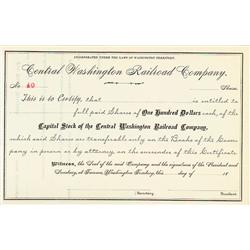 INCORPORATED UNDER THE LAWS OF WASHINGTON TERRITORY.
Central Washington Railroad Company.
No. 40 Shares
This is to Certify, that is entitled to
full paid Shares of One Hundred Dollars each, of the
Capital Stock of the Central Washington Railroad Company,
which said Shares are transferable only on the Books of the Company
in person or by attorney, on the surrender of this Certificate
Witness, the Seal of the said Company and the signatures of the President and
Secretary, at Tacoma, Washington Territory, this day of 18
Secretary. President.